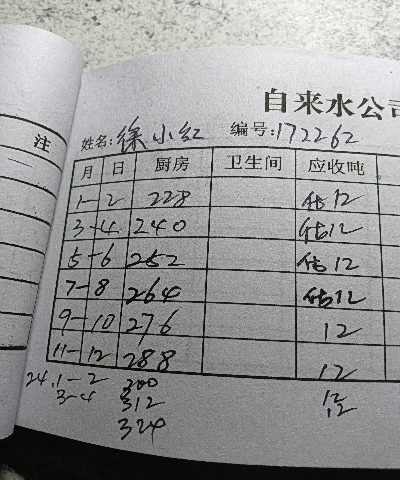 自来水公司
注
姓名:徐小红 编号:172262
月 日 厨房 卫生间 应收吨
1-2 228 估12
3-4 240 估12
5-6 252 估12
7-8 264 估12
9-10 276 12
11-12 288 12
24.1-2 300 12
3-4 312 12
324